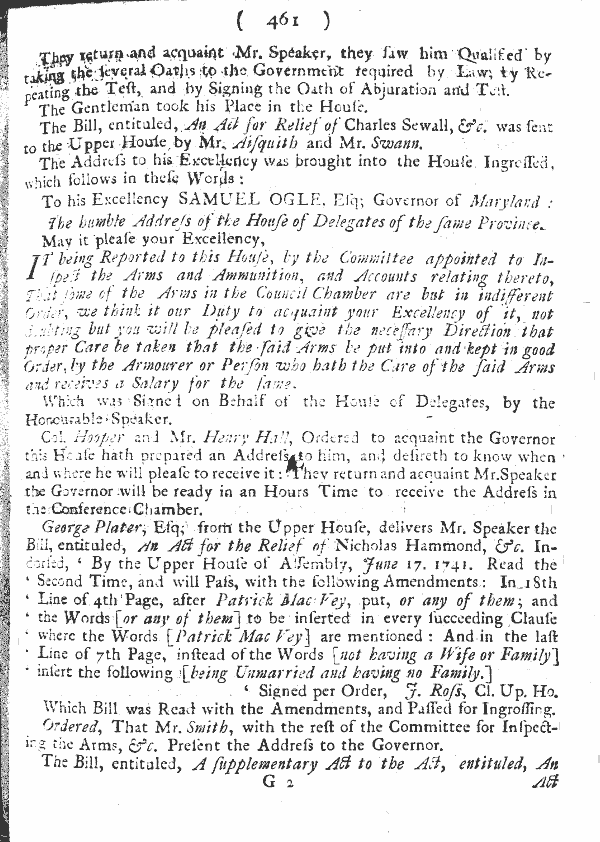 ( 461 )
They return and acquaint Mr. Speaker, they ſaw him Qualified by
taking the ſeveral Oaths to the Government required by Law, by Re-
peating the Teſt, and by Signing the Oath of Abjuration and Teſt.
The Gentleman took his Place in the Houſe.
The Bill, entituled, An Act for Relief of Charles Sewall, &c. was ſent
to the Upper Houſe by Mr. Aiſquith and Mr. Swann.
The Addreſs to his Excellency was brought into the Houſe Ingroſſed,
which follows in theſe Words :
To his Excellency SAMUEL OGLE, Eſq; Governor of Maryland :
The humble Addreſs of the Houſe of Delegates of the ſame Province.
May it pleaſe your Excellency,
IT being Reported to this Houſe, by the Committee appointed to In-
ſpect the Arms and Ammunition, and Accounts relating thereto,
That ſome of the Arms in the Council Chamber are but in indifferent
Order, we think it our Duty to acquaint your Excellency of it, not
doubting but you will be pleaſed to give the neceſſary Direction that
proper Care be taken that the ſaid Arms be put into and kept in good
Order, by the Armourer or Perſon who hath the Care of the ſaid Arms
and receives a Salary for the ſame.
Which was Signed on Behalf of the Houſe of Delegates, by the
Honourable Speaker.
Col. Hooper and Mr. Henry Hall, Ordered to acquaint the Governor
this Houſe hath prepared an Addreſs to him, and deſireth to know when
and where he will pleaſe to receive it : They return and acquaint Mr. Speaker
the Governor will be ready in an Hours Time to receive the Addreſs in
the Conference Chamber.
George Plater, Eſq; from the Upper Houſe, delivers Mr. Speaker the
Bill, entituled, An Act for the Relief of Nicholas Hammond, &c. In-
dorſed, ‘ By the Upper Houſe of Aſſembly, June 17. 1741. Read the
‘ Second Time, and will Paſs, with the following Amendments : In 18th
‘ Line of 4th Page, after Patrick Mac Vey, put, or any of them; and
‘ the Words [or any of them] to be inſerted in every ſucceeding Clauſe
‘ where the Words [Patrick Mac Vey] are mentioned : And in the laſt
‘ Line of 7th Page, inſtead of the Words [not having a Wife or Family]
‘ inſert the following [being Unmarried and having no Family.]
‘ Signed per Order, J. Roſs, Cl. Up. Ho.
Which Bill was Read with the Amendments, and Paſſed for Ingroſſing.
Ordered, That Mr. Smith, with the reſt of the Committee for Inſpect-
ing the Arms, &c. Preſent the Addreſs to the Governor.
The Bill, entituled, A ſupplementary Act to the Act, entituled, An
G 2 Act